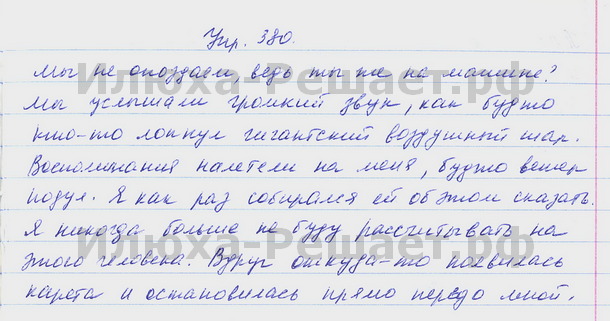 Упр. 380.
Мы не опоздаем, ведь ты же на машине?
Мы услышали громкий звук, как будто
кто-то лопнул гигантский воздушный шар.
Воспоминания налетели на меня, будто ветер
подул. Я как раз собирался ей об этом сказать.
Я никогда больше не буду рассчитывать на
этого человека. Вдруг откуда-то появилась
карета и остановилась прямо передо мной.
Илюха-Решает.рф
Илюха-Решает.рф